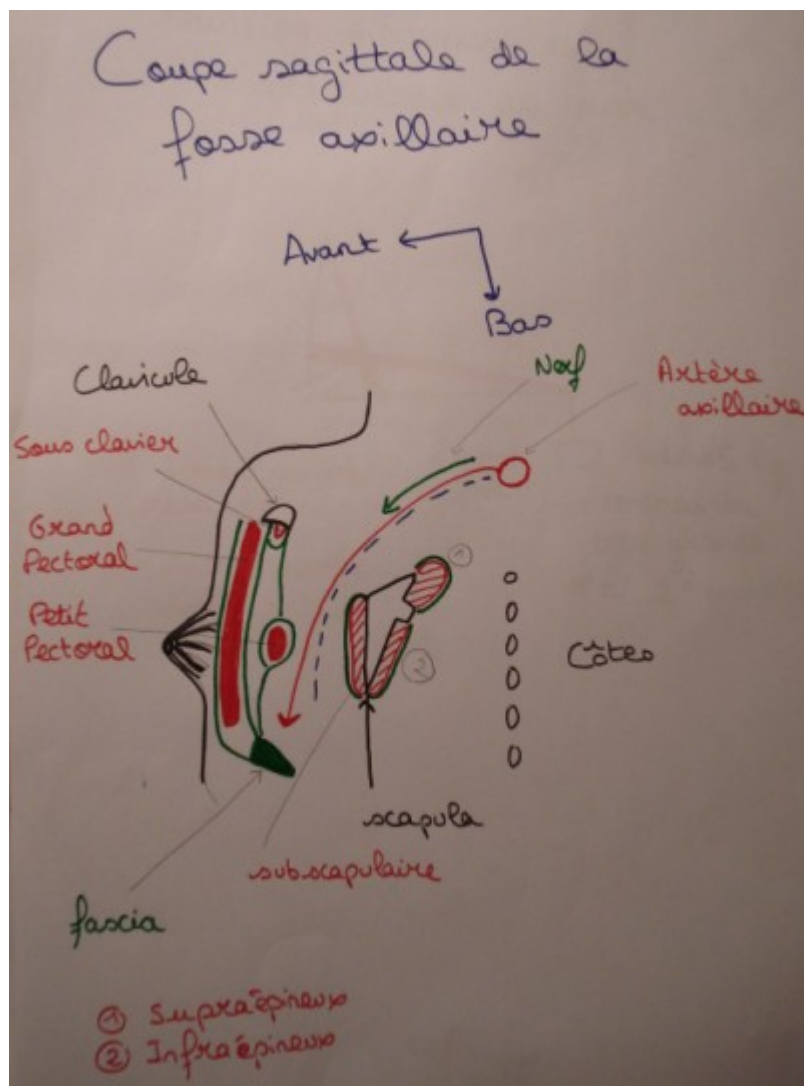 Coupe sagittale de la
fosse axillaire
Avant
Bas
Clavicule
Nerf
Artère
axillaire
Sous clavier
Grand
Pectoral
Petit
Pectoral
①
②
Côtes
scapula
subscapulaire
fascia
① Supraépineux
② Infraépineux